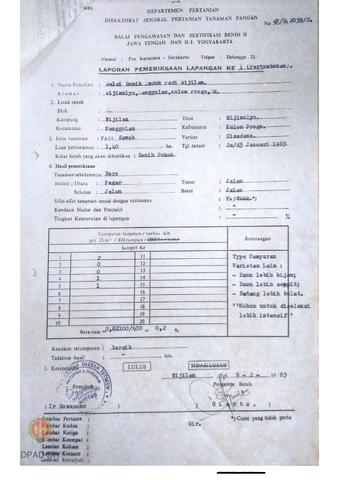 DEPARTEMEN PERTANIAN
DIREKTORAT JENDRAL PERTANIAN TANAMAN PANGAN
BALAI PENGAWASAN DAN SERTIFIKASI BENIH II
JAWA TENGAH DAN D.I. YOGYAKARTA
Alamat : Pos Kartasura - Surakarta. Telpon : Delanggu 21.
LAPORAN PEMERIKSAAN LAPANGAN KE 1 (Pertumbuhan).
1. Nama Pemohon : Balai Benih Induk Padi Wijilan,
Alamat : Wijimulyo, Nanggulan, Kulon Progo,
2. Letak tanah
Blok :
Kampung : Wijilan
Desa : Wijimulyo.
Kecamatan : Nanggulan
Kabupaten : Kulon Progo.
3. Jenis tanaman : PADI Sawah
Varitas : Cisadane.
Luas pertanaman : 1,40 ha.
Tgl tanam : 2s/d3 Januari 1985
Kelas benih yang akan dihasilkan : Benih Pokok.
4. Hasil pemeriksaan
Tanaman sebelumnya : Bero
Isolasi : Utara : Pagar
Timur : Jalan
Selatan : Jalan
Barat : Jalan
Sifat-sifat tanaman sesuai dengan varitasnya : Ya/
Keadaan Hama dan Penyakit : -
Tingkat Kemurnian di lapangan : - %
Campuran tanaman / varitas lain
Keterangan
Sampel Ke
1 2 11
2 0 12
3 0 13
4 1 14
5 1 15
6 16
7 17
8 18
9 19
10 20
Type Campuran
Varietas Lain :
- Daun lebih hijau;
- Daun lebih sempit;
- Batang lebih bulat.
"Mohon untuk diseleksi
lebih intensif"
Rata-rata = 0,8X100/400 = 0,2 %
Keadaan rerumputan : bersih
Taksiran hasil : -
5. Kesimpulan : LULUS TIDAK LULUS
Wijilan Tgl. 9 - 2 - 1985
Pemohon
Pengawas Benih
Giarto.
*) Coret yang tidak perlu
Gir.
Lembar Pertama :
Lembar Kedua :
Lembar Ketiga :
Lembar Keempat :
Lembar Kelima :
Lembar Keenam :